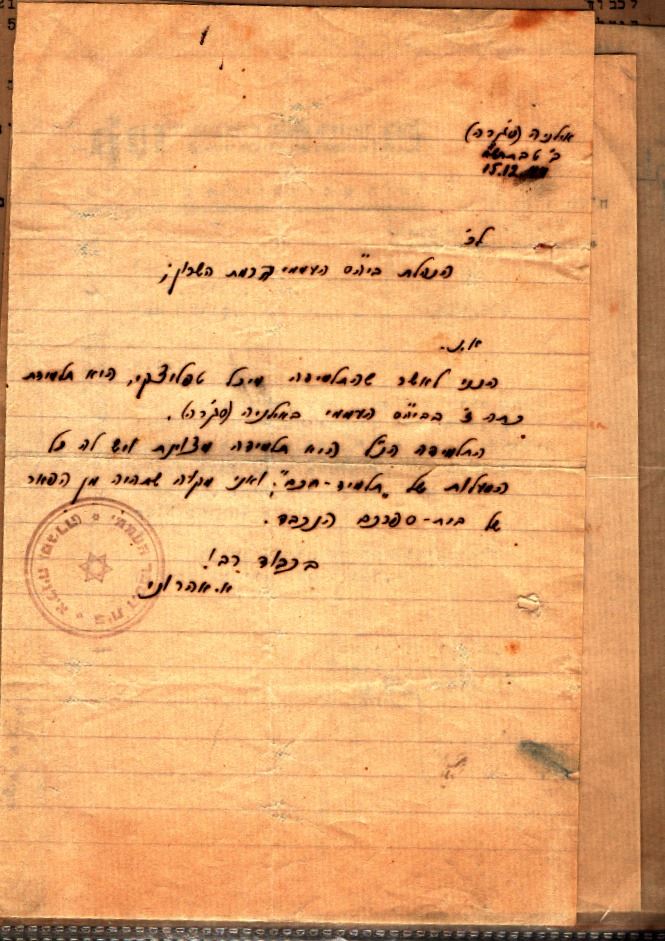 אילניה (סג'רה)
ב' טבת
15.12
לכ'
הנהלת ביה"ס העממי רמת השרון;
א.נ.
הנני לאשר שהתלמידה מיכל טפליצקי, היא תלמידת
כתה בביה"ס העממי באילניה (סג'רה).
התלמידה הנ"ל היא תלמידה מצוינת ויש לה כל
המעלות של "תלמיד-חכם", ואני מקוה שתהיה מן הפאר
של בית-ספרכם הנכבד.
בכבוד רב!
א. אהרוני